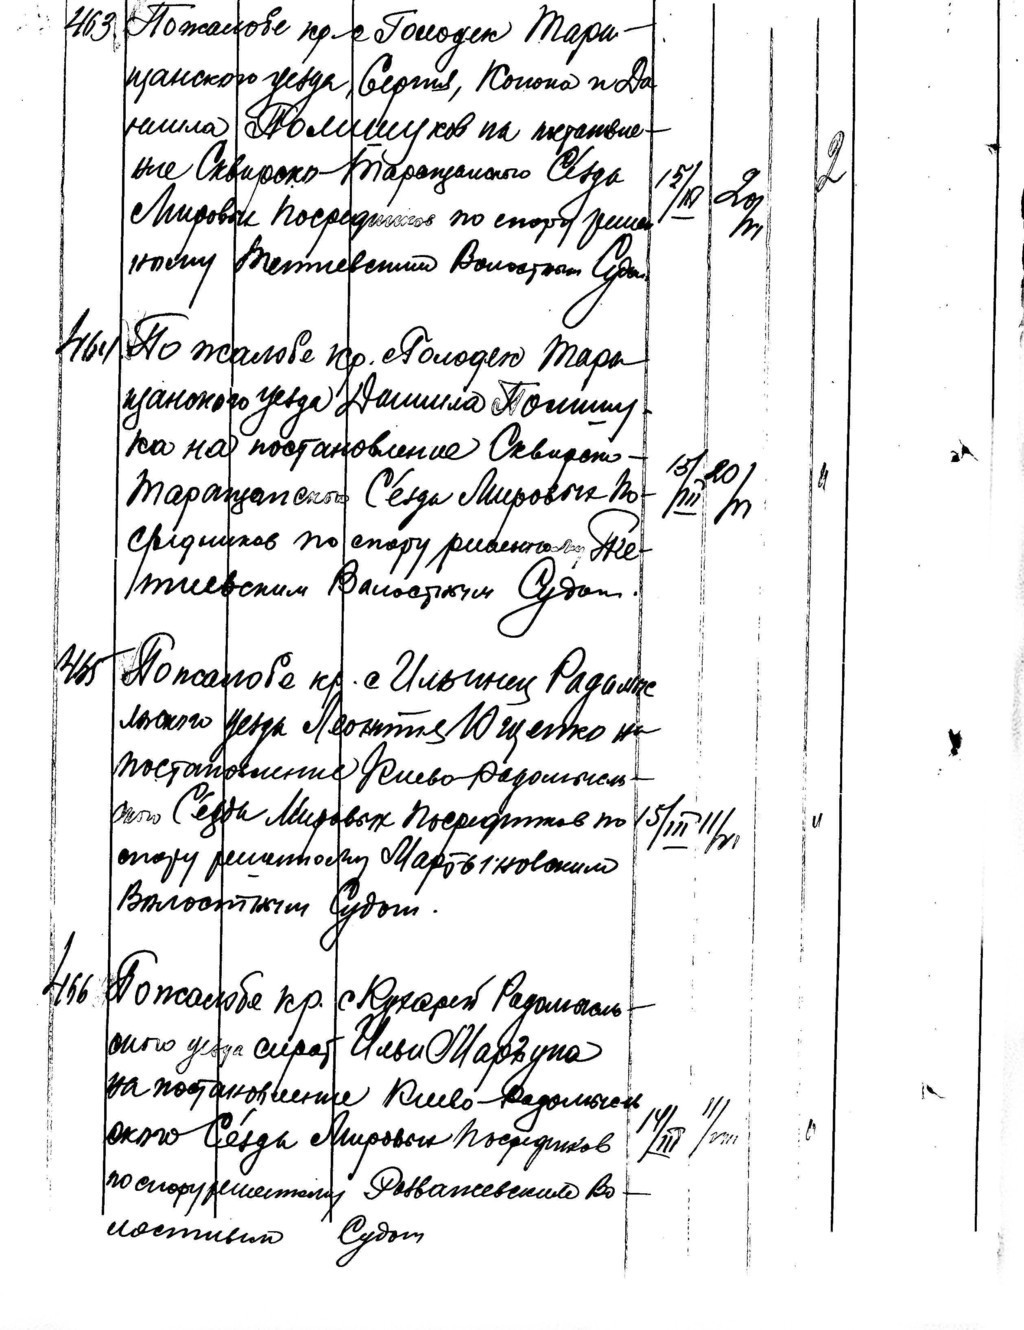 463 По жалобе кр. с Голодек Тара-
щанского уезда, Сергия, Конона и Да
ниила Полищуков на постановле-
ние Сквирско-Таращанского Сезда 15/III 20/VI 2
Мировых Посредников по спору решен
ному Тетиевским Волостным Судом.
464 По жалобе кр. с Голодек Тара
щанского уезда Даниила Полищу-
ка на постановление Сквирско-
Таращанского Сезда Мировых По- 15/III 20/VI "
средников по спору решенному Те-
тиевским Волостным Судом.
465 По жалобе кр. с Ильинец Радомыс
льского уезда Леонтия Ющенко на
постановление Киево-Радомысль-
ского Сезда Мировых Посредников по 15/III 11/ "
спору решенному Мартыновским
Волостным Судом.
466 По жалобе кр. с Кухарей Радомысль-
ского уезда сирот Ильи
на постановление Киево-Радомысль
ского Сезда Мировых Посредников 14/III 11/ "
по спору решенному Розважевским Во-
лостным Судом